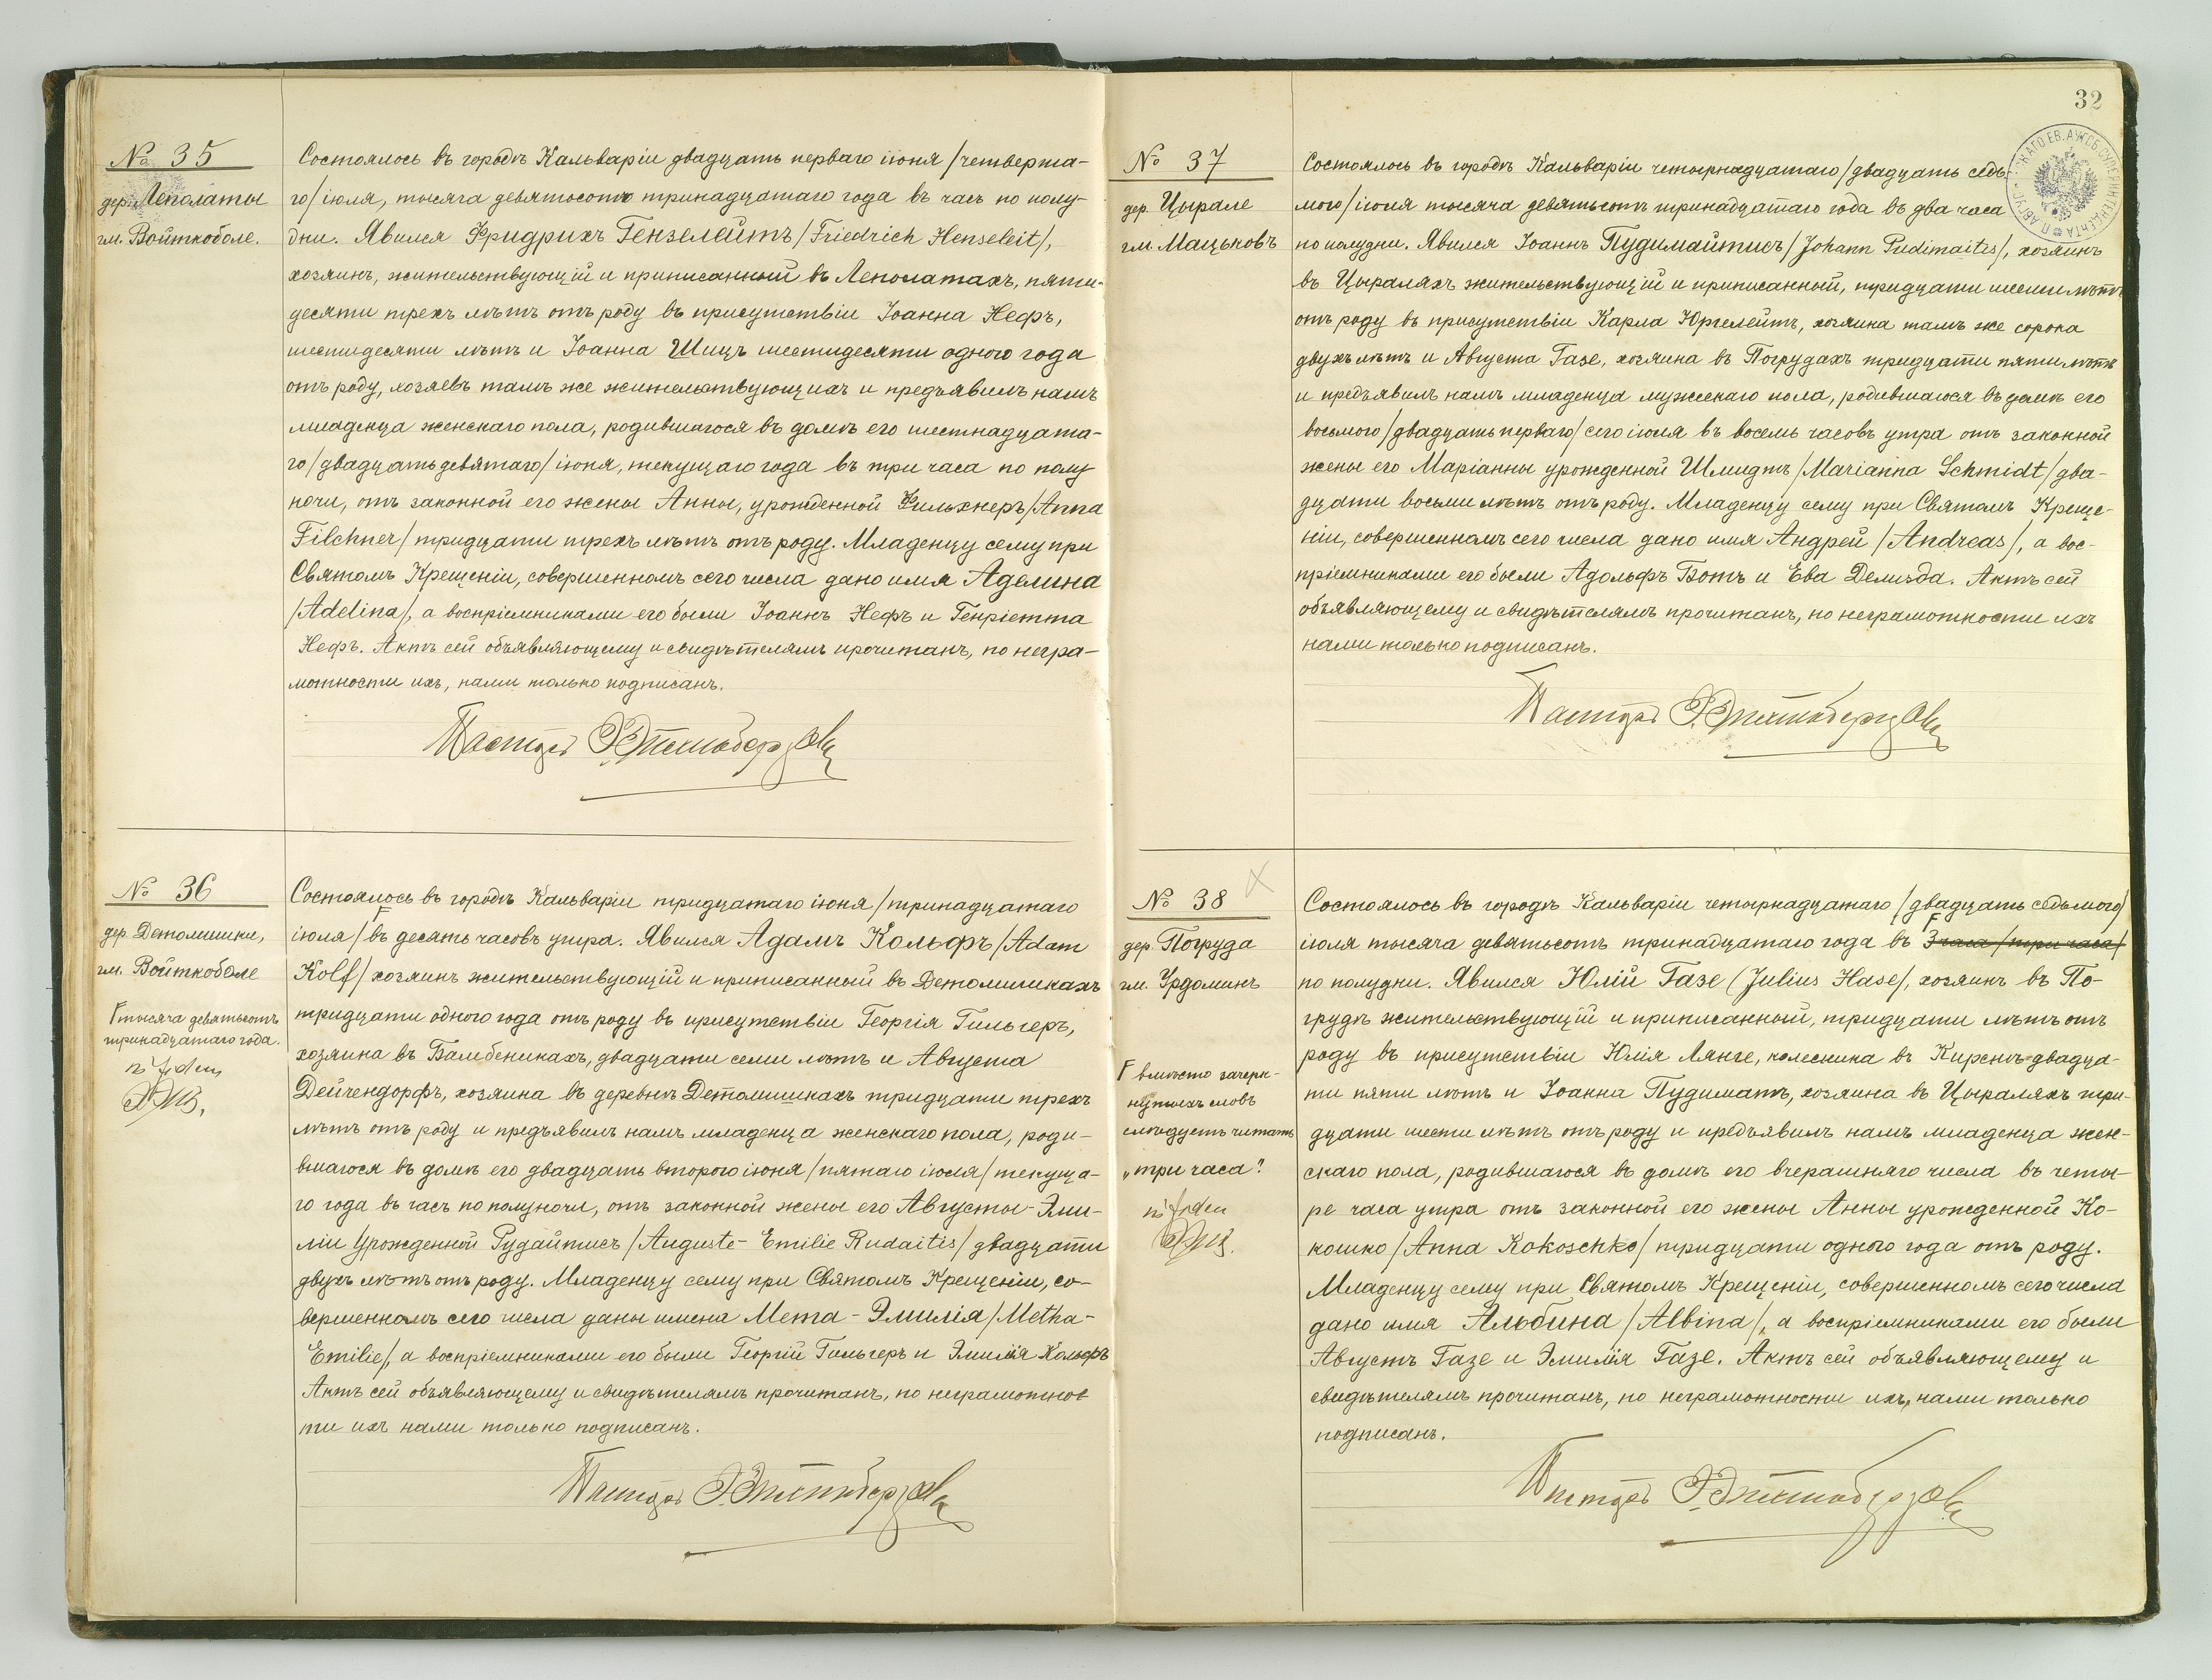 № 35
дер. Леполаты
гм. Войткоболе.
Состоялось въ городѣ Кальваріи двадцать перваго іюня /четверта-
го/ іюля, тысяча девятьсотъ тринадцатаго года въ часъ по полу-
дни. Явился Фридрихъ Гензелейтъ /Friedrich Henseleit/,
хозяинъ, жительствующій и приписанный въ Леполатахъ, пяти-
десяти трехъ лѣтъ отъ роду въ присутствіи Іоанна Нефъ,
шестидесяти лѣтъ и Іоанна Шицъ шестидесяти одного года
отъ роду, хозяевъ тамъ же жительствующихъ и предъявилъ намъ
младенца женскаго пола, родившагося въ домѣ его шестнадцата-
го /двадцать девятаго/ іюня, текущаго года въ три часа по полу
ночи, отъ законной его жены Анны, урожденной Фильхнеръ /Anna
Filchner/ тридцати трехъ лѣтъ отъ роду. Младенцу сему при
Святомъ Крещеніи, совершенномъ сего числа дано имя Аделина
/Adelina/, а воспріемниками его были Іоаннъ Нефъ и Генріетта
Нефъ. Актъ сей объявляющему и свидѣтелямъ прочитанъ, по негра-
мотности ихъ, нами только подписанъ.
Пасторъ
№ 36
дер. Детомишки,
гм. Войткоболе
Г тысяча девятьсотъ
тринадцатаго года.
Состоялось въ городѣ Кальваріи тридцатаго іюня /тринадцатаго
іюля/ Г въ десять часовъ утра. Явился Адамъ Кольфъ /Adam
Kolf/ хозяинъ жительствующій и приписанный въ Детомишкахъ
тридцати одного года отъ роду въ присутствіи Георгія Гильгеръ,
хозяина въ Бамбеникахъ, двадцати семи лѣтъ и Августа
Дейчендорфъ, хозяина въ деревнѣ Детомишкахъ тридцати трехъ
лѣтъ отъ роду и предъявилъ намъ младенца женскаго пола, роди-
вшагося въ домѣ его двадцать второго іюня /пятаго іюля/ текуща-
го года въ часъ по полуночи, отъ законной жены его Августы-Эми-
ліи урожденной Рудайтисъ /Auguste-Emilie Rudaitis/ двадцати
двухъ лѣтъ отъ роду. Младенцу сему при Святомъ Крещеніи, со-
вершенномъ сего числа даны имена Мета-Эмилія /Metha-
Emilie/, а воспріемниками его были Георгій Гильгеръ и Эмилія Кольфъ
Актъ сей объявляющему и свидѣтелямъ прочитанъ, по неграмотнос
ти ихъ нами только подписанъ.
Пасторъ
32
№ 37
дер. Цырале
гм. Мацьковъ
Состоялось въ городѣ Кальваріи четырнадцатаго /двадцать седь-
мого/ іюля тысяча девятьсотъ тринадцатаго года въ два часа
по полудни. Явился Іоаннъ Пудимайтисъ /Johann Pudimaitis/, хозяинъ
въ Цыраляхъ жительствующій и приписанный, тридцати шести лѣтъ
отъ роду въ присутствіи Карла Юргелейтъ, хозяина тамъ же сорока
двухъ лѣтъ и Августа Газе, хозяина въ Погрудахъ тридцати пяти лѣтъ
и предъявилъ намъ младенца мужскаго пола, родившагося въ домѣ его
восьмого /двадцать перваго/ сего іюля въ восемь часовъ утра отъ законной
жены его Маріанны урожденной Шмидтъ /Marianna Schmidt/ два-
дцати восьми лѣтъ отъ роду. Младенцу сему при Святомъ Креще-
ніи, совершенномъ сего числа дано имя Андрей /Andreas/, а вос-
пріемниками его были Адольфъ Ботъ и Ева Делизда. Актъ сей
объявляющему и свидѣтелямъ прочитанъ, по неграмотности ихъ
нами только подписанъ.
Пасторъ
№ 38
дер. Погруда
гм. Урдоминъ
Г вмѣсто зачерк-
нутыхъ словъ
слѣдуетъ читать
„три часа"
Состоялось въ городѣ Кальваріи четырнадцатаго /двадцать седьмого/
іюля тысяча девятьсотъ тринадцатаго года въ Г 3 часа /три часа/
по полудни. Явился Юлій Газе (Julius Hase/, хозяинъ въ По-
грудѣ жительствующій и приписанный, тридцати лѣтъ отъ
роду въ присутствіи Юлія Лянге, колесника въ Кирснѣ двадца-
ти пяти лѣтъ и Іоанна Пудиматъ, хозяина въ Цыраляхъ три-
дцати шести лѣтъ отъ роду и предъявилъ намъ младенца жен-
скаго пола, родившагося въ домѣ его вчерашняго числа въ четы-
ре часа утра отъ законной его жены Анны урожденной Ко-
кошко /Anna Kokoschko/ тридцати одного года отъ роду.
Младенцу сему при Святомъ Крещеніи, совершенномъ сего числа
дано имя Альбина /Albina/, а воспріемниками его были
Августъ Газе и Эмилія Газе. Актъ сей объявляющему и
свидѣтелямъ прочитанъ, по неграмотности ихъ, нами только
подписанъ.
Пасторъ